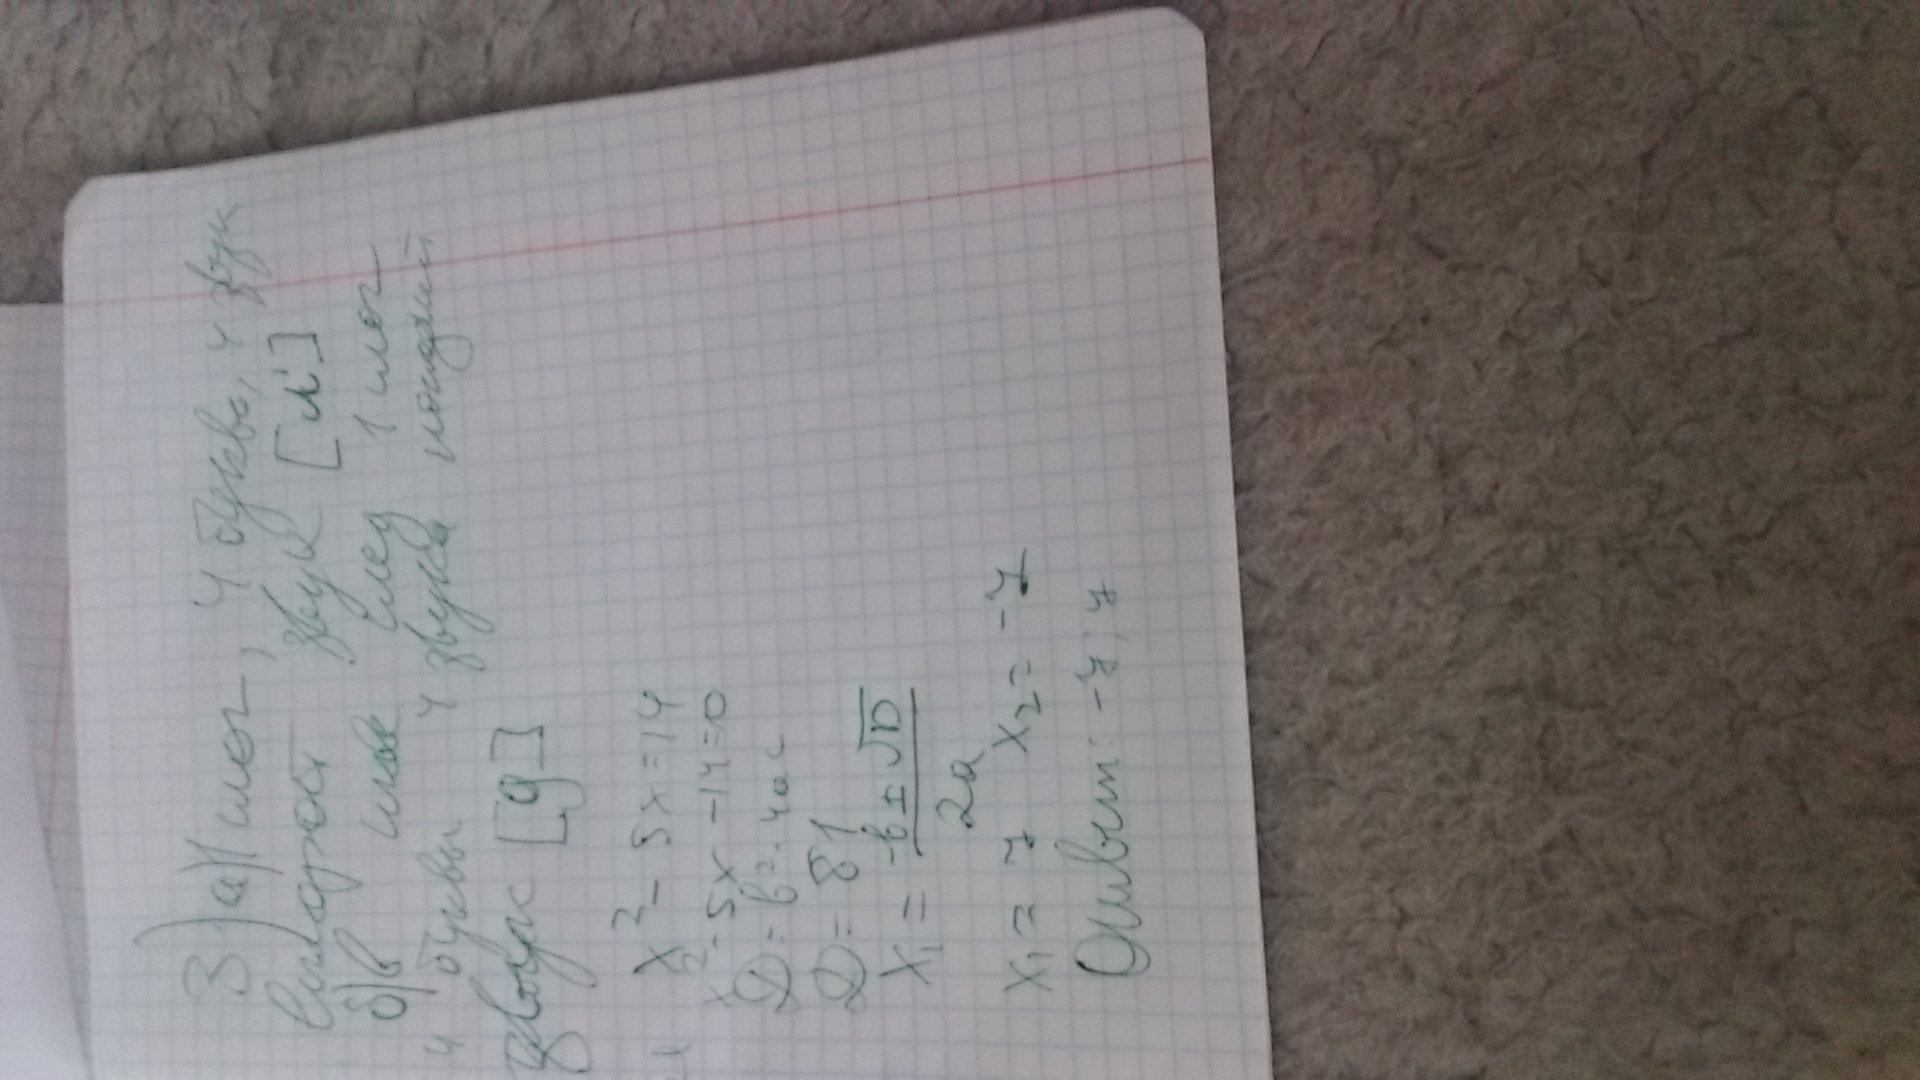 3) а) 1 слог, 4 буквы, 4 звук
второй звук [л']
б) В слове след 1 слог
4 буквы 4 звука последний
звук [д]
x² - 5x = 14
x² - 5x - 14 = 0
D = b² - 4ac
D = 81
x₁ = -b ± √D
2a
x₁ = 7 x₂ = -7
Ответ: -7; 7